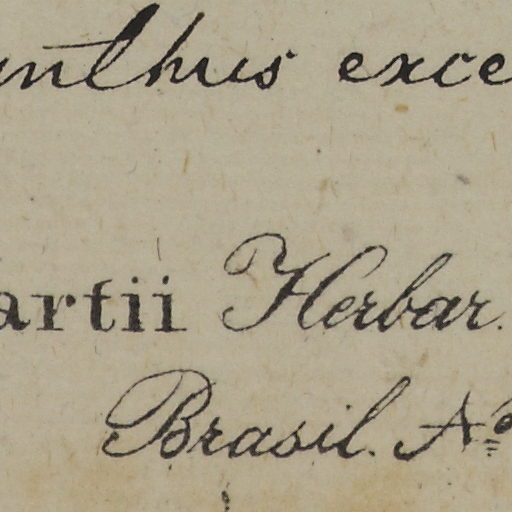 anthus exce
artii Herbar.
Brasil. No